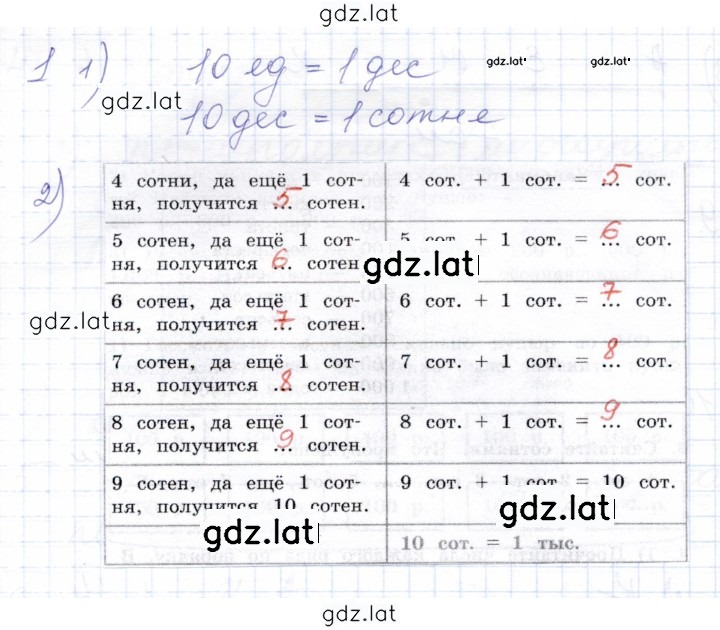 gdz.lat
1 1) 10 ед = 1 дес
gdz.lat
gdz.lat
gdz.lat
10 дес = 1 сотня
2)
4 сотни, да ещё 1 сот-
ня, получится 5 сотен.
4 сот. + 1 сот. = 5 сот.
5 сотен, да ещё 1 сот-
ня, получится 6 сотен
5 сот. + 1 сот. = 6 сот.
gdz.lat
6 сотен, да ещё 1 сот-
ня, получится 7 сотен.
6 сот. + 1 сот. = 7 сот.
gdz.lat
7 сотен, да ещё 1 сот-
ня, получится 8 сотен.
7 сот. + 1 сот. = 8 сот.
8 сотен, да ещё 1 сот-
ня, получится 9 сотен.
8 сот. + 1 сот. = 9 сот.
9 сотен, да ещё 1 сот-
ня, получится 10 сотен.
9 сот. + 1 сот. = 10 сот.
gdz.lat
gdz.lat
10 сот. = 1 тыс.
gdz.lat